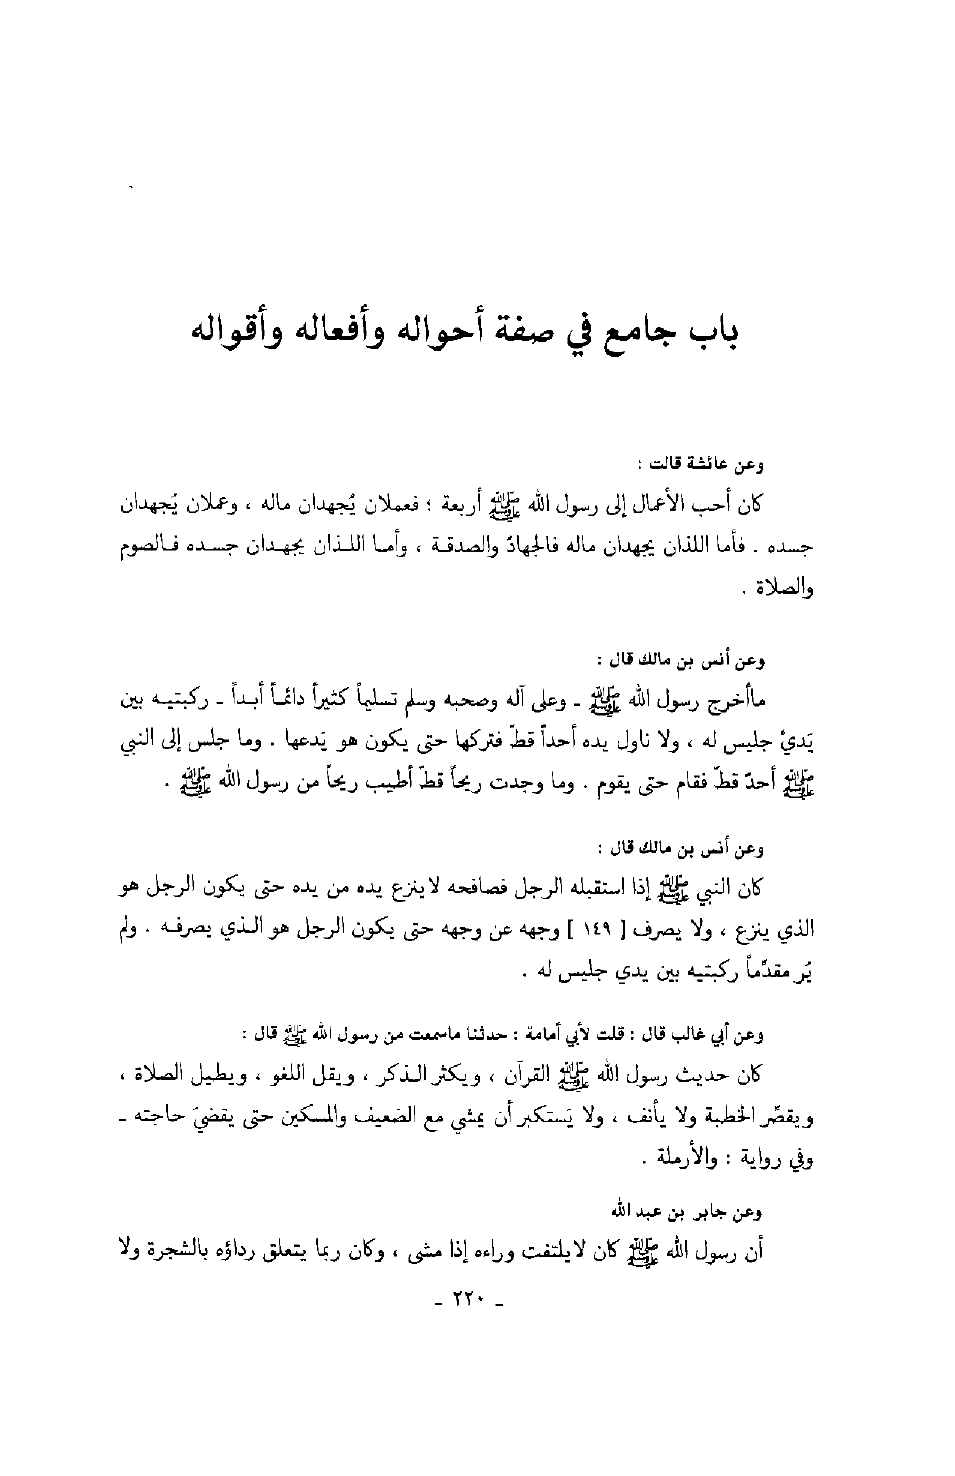 باب جامع في صفة أحواله وأفعاله وأقواله
وعن عائشة قالت :
كان أحب الأعمال إلى رسول الله ﷺ أربعة ؛ فعملان يُجهدان ماله ، وعملان يُجهدان
جسده . فأما اللذان يجهدان ماله فالجهادُ والصدقة ، وأما اللذان يجهدان جسده فالصوم
والصلاة .
وعن أنس بن مالك قال :
ماأخرج رسول الله ﷺ ـ وعلى آله وصحبه وسلم تسليماً كثيراً دائماً أبداً ـ ركبتيه بين
يَديْ جليس له ، ولا ناول يده أحداً قطّ فتركها حتى يكون هو يَدعها . وما جلس إلى النبي
ﷺ أحدٌ قطّ فقام حتى يقوم . وما وجدت ريحاً قطّ أطيب ريحاً من رسول الله ﷺ .
وعن أنس بن مالك قال :
كان النبي ﷺ إذا استقبله الرجل فصافحه لاينزع يده من يده حتى يكون الرجل هو
الذي ينزع ، ولا يصرف [ ١٤٩ ] وجهه عن وجهه حتى يكون الرجل هو الذي يصرفه . ولم
يُر مقدِّماً ركبتيه بين يدي جليس له .
وعن أبي غالب قال : قلت لأبي أمامة : حدثنا ماسمعت من رسول الله ﷺ قال :
كان حديث رسول الله ﷺ القرآن ، ويكثر الذكر ، ويقل اللغو ، ويطيل الصلاة ،
ويقصِّر الخطبة ولا يأنف ، ولا يَستكبر أن يمشي مع الضعيف والمسكين حتى يقضيَ حاجته ـ
وفي رواية : والأرملة .
وعن جابر بن عبد الله
أن رسول الله ﷺ كان لايلتفت وراءه إذا مشى ، وكان ربما يتعلق رداؤه بالشجرة ولا
ـ ٢٢٠ ـ